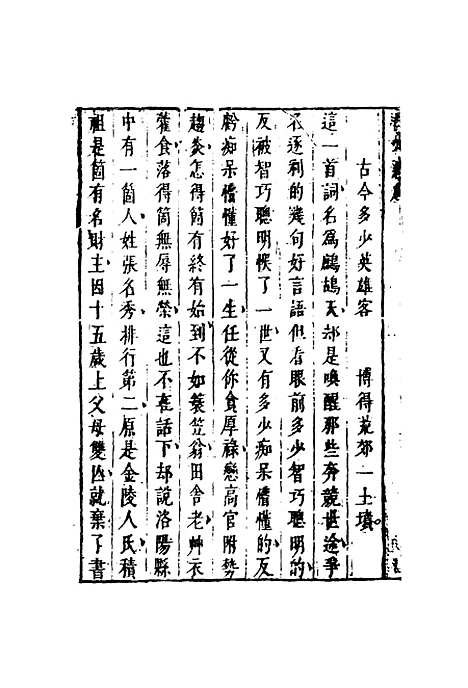 古今多少英雄客　博得荒郊一土墳
這一首詞名為鷓鴣天却是喚醒那些奔競世途爭
名逐利的幾句好言語但看眼前多少智巧聰明的
反被智巧聰明悞了一世又有多少痴呆懵懂的反
痴呆懵懂好了一生任從你貪厚祿戀高官附勢
趨炎怎得箇有終有始到不如蓑笠翁田舍老艸衣
藿食落得箇無辱無榮這也不在話下却說洛陽縣
中有一箇人姓張名秀排行第二原是金陵人氏積
祖是箇有名財主因十五歲上父母雙亡就棄了書